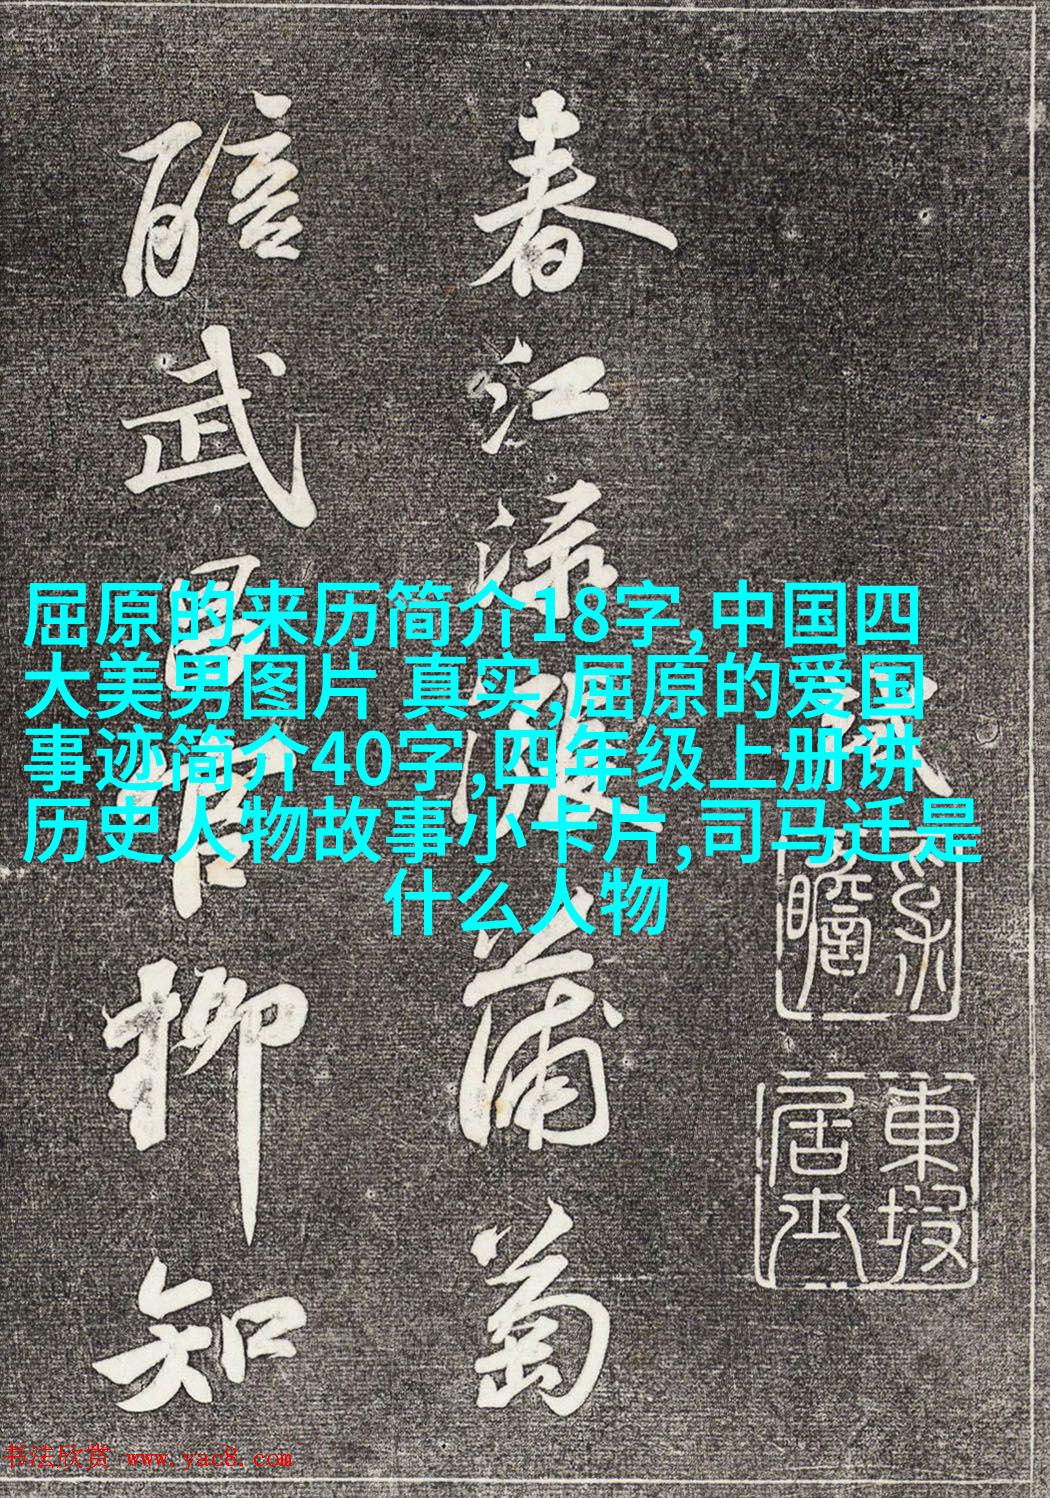 屈原的来历简介18字,中国四
大美男图片 真实,屈原的爱国
事迹简介40字,四年级上册讲
历史人物故事小卡片,司马迁是
什么人物
春江渌涨蒲萄
醅武昌官柳知
東坡居士
书法欣赏 www.yac8.com